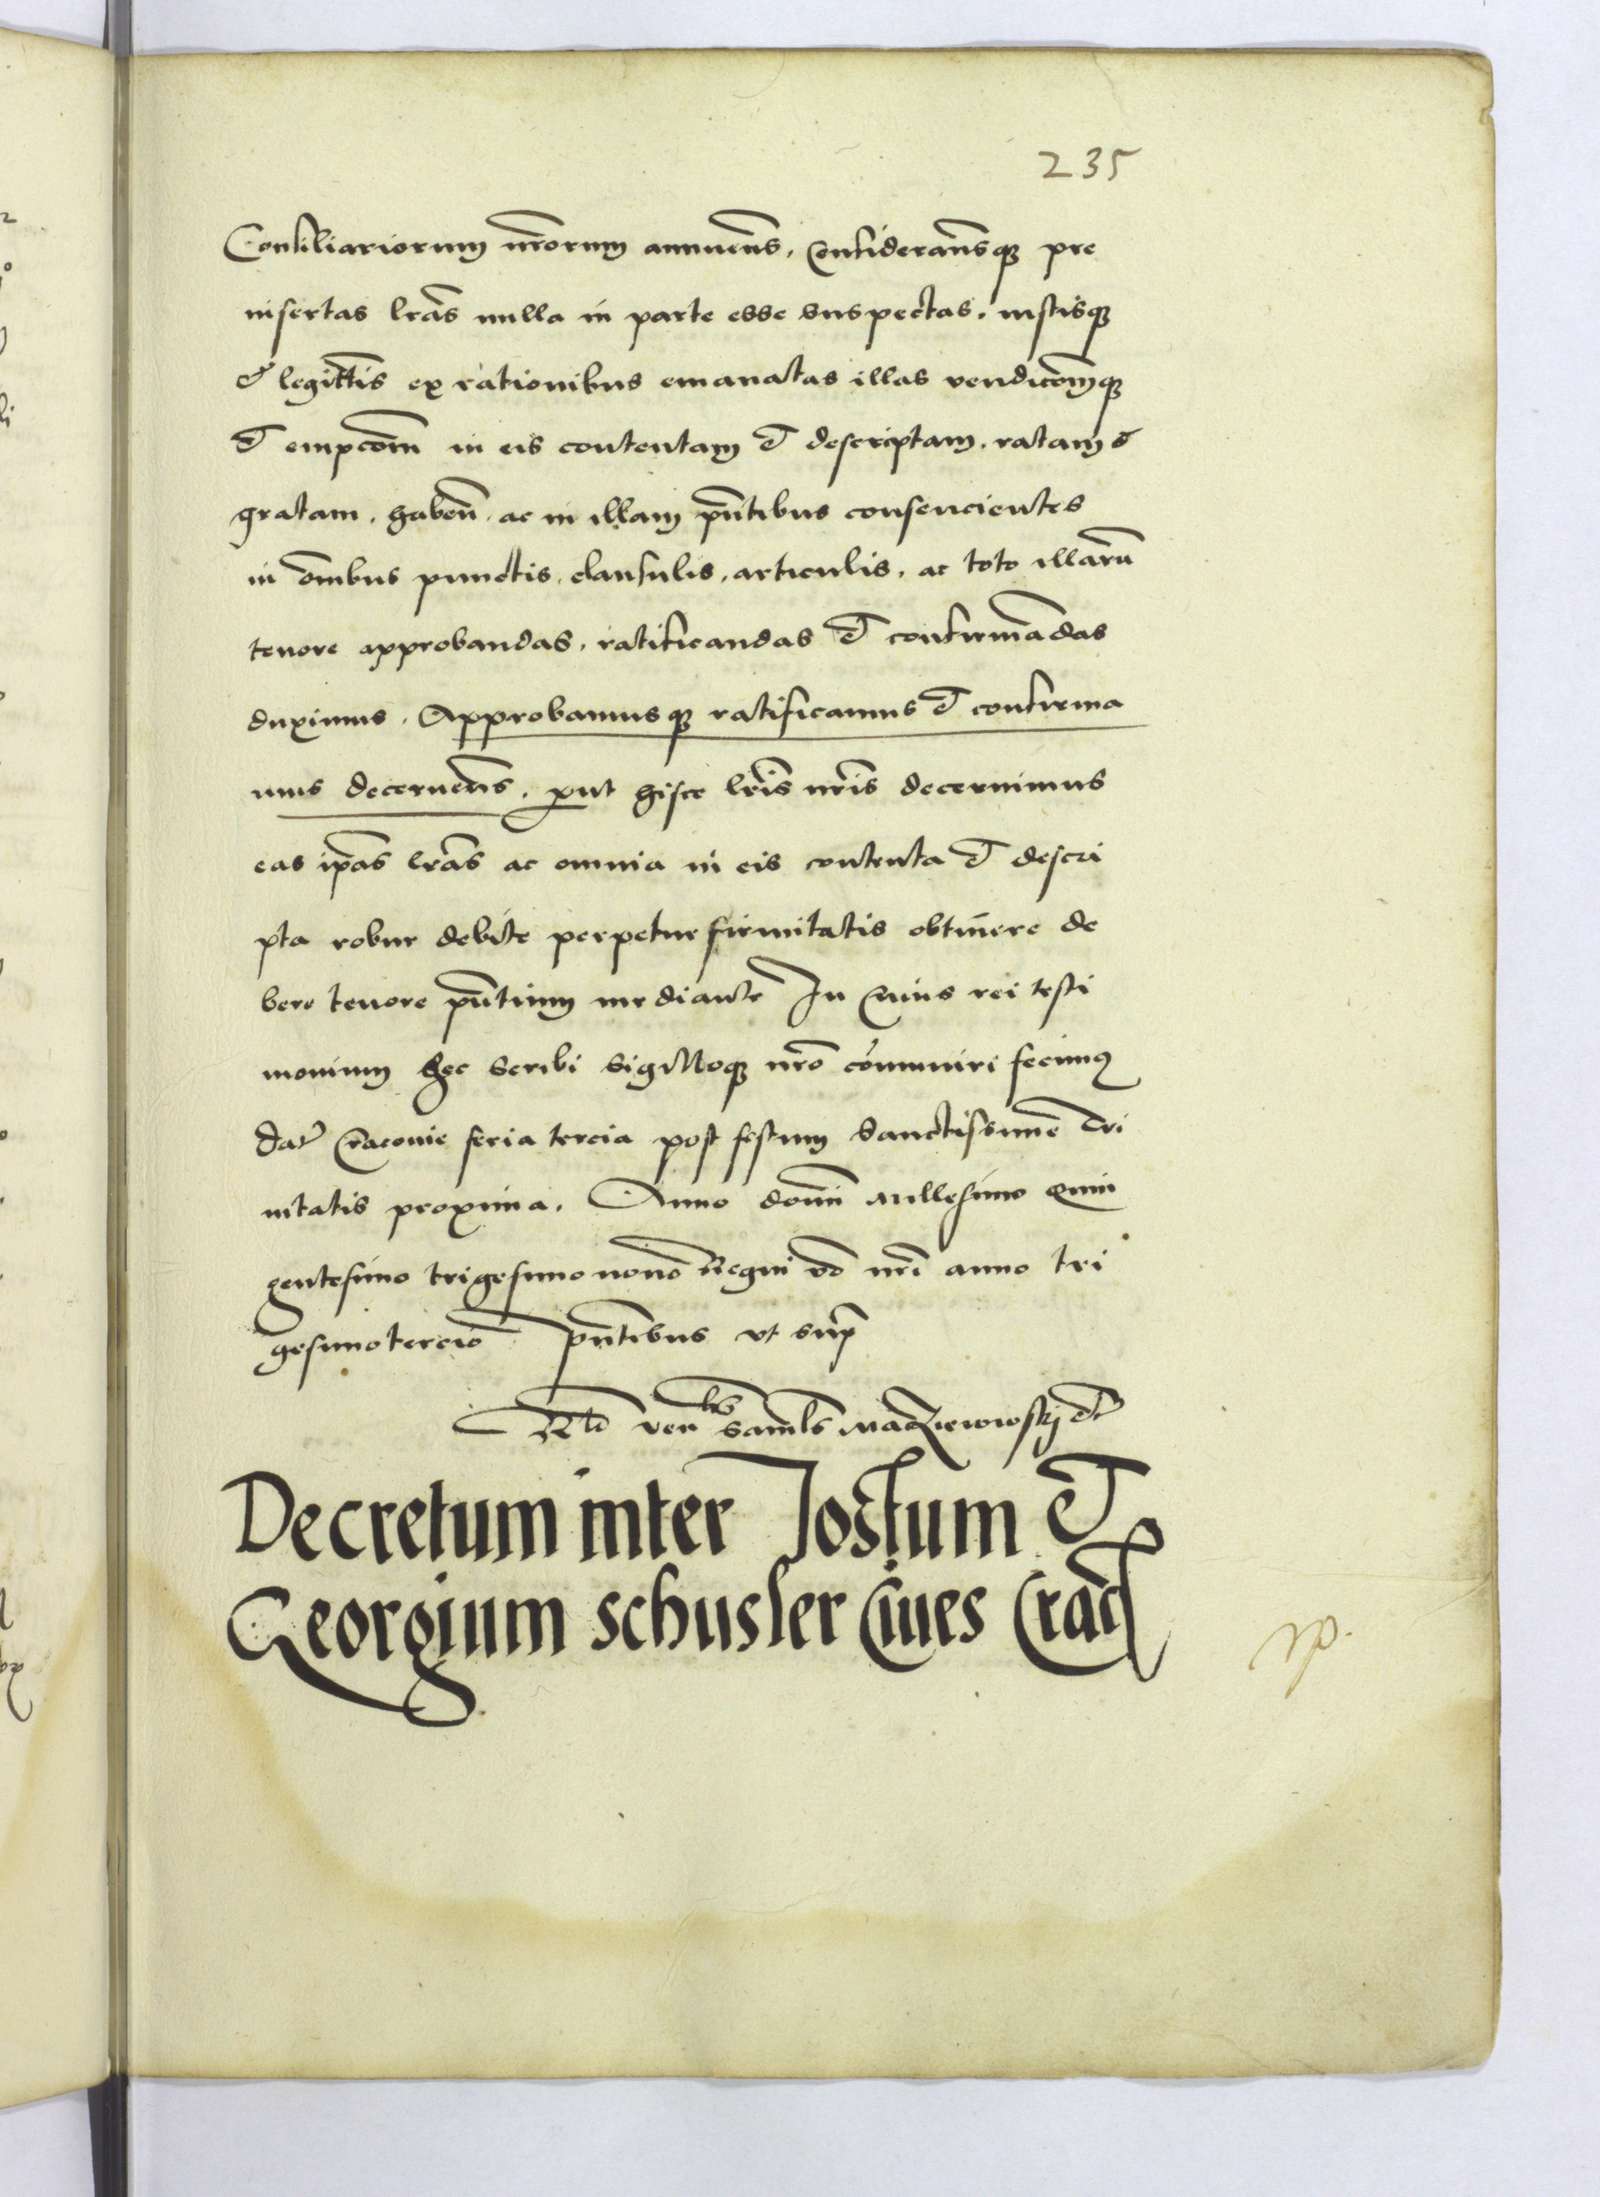 235
Consiliariorum nrorum annuens, Consideransq pre
insertas lras nulla in parte esse suspectas, iustisq
et legittis ex rationibus emanatas illas vendicomq
et empcom in eis contentam et descriptam, ratam et
gratam, haben, ac in illam pntibus consencientes
in ombus punctis, clausulis, articulis, ac toto illaru
tenore approbandas, ratificandas et confirmadas
duximus, Approbamusq ratificamus et confirma
mus decernens, prut hisce lris nris decernimus
eas ipas lras ac omnia in eis contenta et descri
pta robur debite perpetue firmitatis obtinere de
bere tenore pntium mediante In Cuius rei testi
monium hec scribi sigilloq nro comuniri fecimus
Dat Cracovie feria tercia post festum Sanctissime Tri
nitatis proxima, Anno domi Millesimo Quin
gentesimo trigesimo nono Regni vo nri anno tri
gesimotercio pntibus vt supra
Rlo venblis Samlis Macziewowskj etc
Decretum inter Jostum et
Georgium schusler Ciues Crac